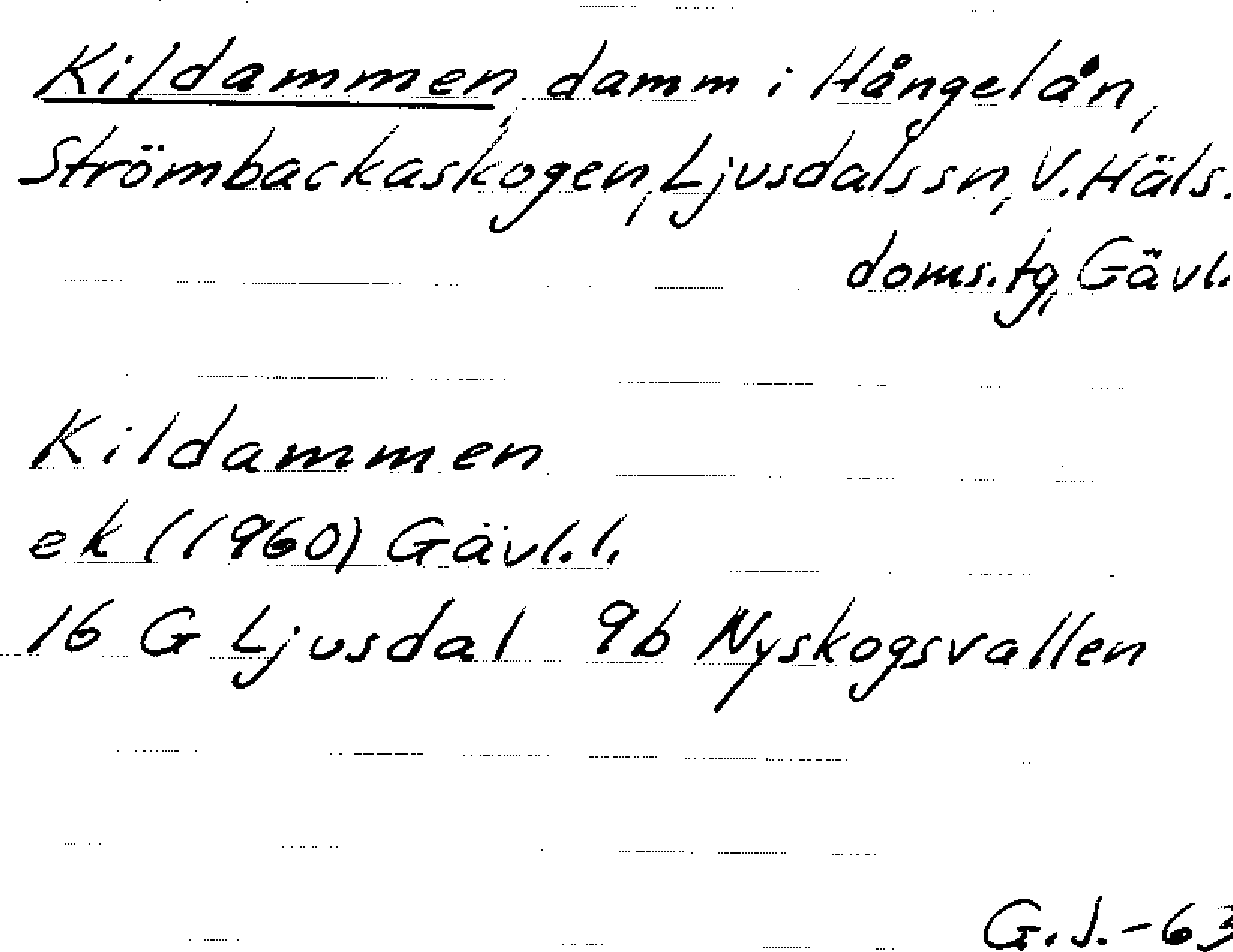 Kildammen, damm i Hångelån,
Strömbackaskogen, Ljusdals sn, V. Häls.
doms. tg, Gävl.
Kildammen
ek (1960) Gävl. l.
16 G Ljusdal 9b Nyskogsvallen
G. J. - 63